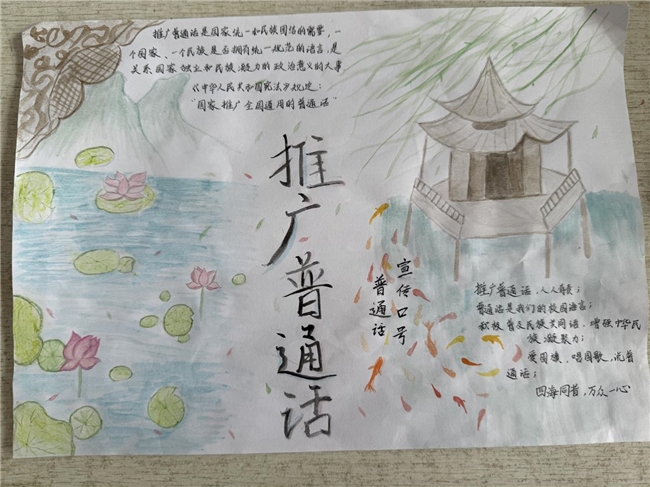 推广普通话是国家统一和民族团结的需要，一
个国家、一个民族是否拥有统一规范的语言，是
关系国家独立和民族凝聚力的政治意义的大事
《中华人民共和国宪法》规定：
“国家推广全国通用的普通话”
推广普通话
宣传口号
普通话
推广普通话，人人有责；
普通话是我们的校园语言；
积极普及民族共同语，增强中华民
族凝聚力；
爱国旗、唱国歌，说普
通话；
四海同音，万众一心